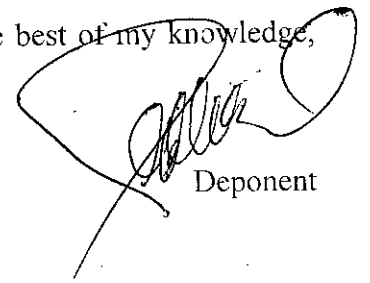 best of my knowledge,
Deponent